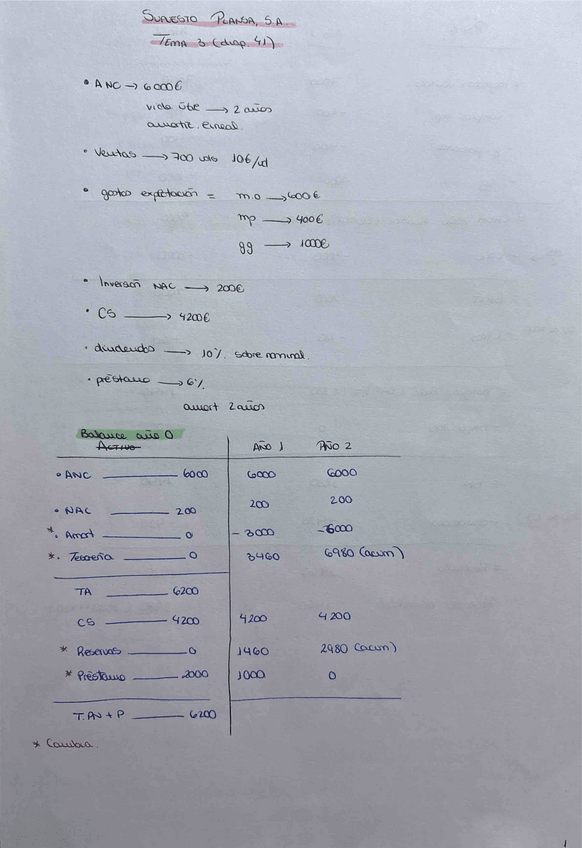 SUPUESTO PLANSA, S.A.
TEMA 3 (diap. 41)
• ANC → 6000€
vida útil → 2 años
amortiz. lineal.
• Ventas → 700 uds 10€/ud
• gastos explotación = m.o → 600€
mp → 400€
gg → 1000€
• Inversión NAC → 200€
• CS → 4200€
• dividendos → 10% sobre nominal.
• préstamo → 6%
amort 2 años
Balance año 0
ACTIVO AÑO 1 AÑO 2
• ANC 6000 6000 6000
• NAC 200 200 200
*. Amort 0 -3000 -6000
*. Tesorería 0 3460 6980 (acum)
TA 6200
CS 4200 4200 4200
* Reservas 0 1460 2980 (acum)
* Préstamo 2000 1000 0
T.PN + P 6200
* Cambia.
1